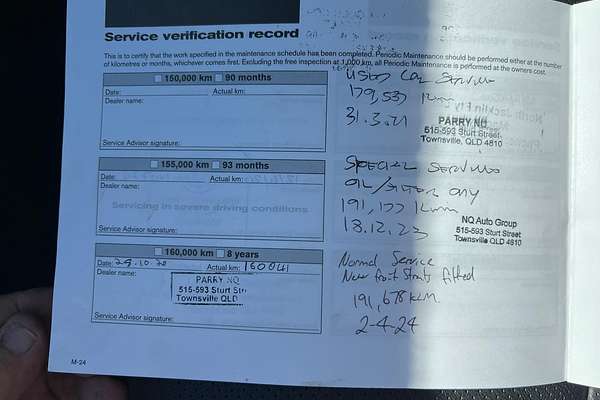 Service verification record
This is to certify that the work specified in the maintenance schedule has been completed. Periodic Maintenance should be performed either at the number
of kilometres or months, whichever comes first. Excluding the free inspection at 1,000 km, all Periodic Maintenance is performed at the owners cost.
150,000 km 90 months
Date: Actual km:
Dealer name:
Service Advisor signature:
155,000 km 93 months
Date: Actual km:
Dealer name:
Servicing in severe driving conditions
Service Advisor signature:
160,000 km 8 years
Date: 29.10.20 Actual km: 160041
Dealer name:
PARRY NQ
515-593 Sturt Str
Townsville QLD
Service Advisor signature:
M-24
Used Car Service
179,537 km
31.3.21
PARRY NQ
515-593 Sturt Street
Townsville, QLD 4810
SPECIAL SERVICE
OIL/FILTER ONLY
191,177 km
18.12.23
NQ Auto Group
515-593 Sturt Street
Townsville QLD 4810
Normal Service
New front struts fitted
191,678 km
2-4-24